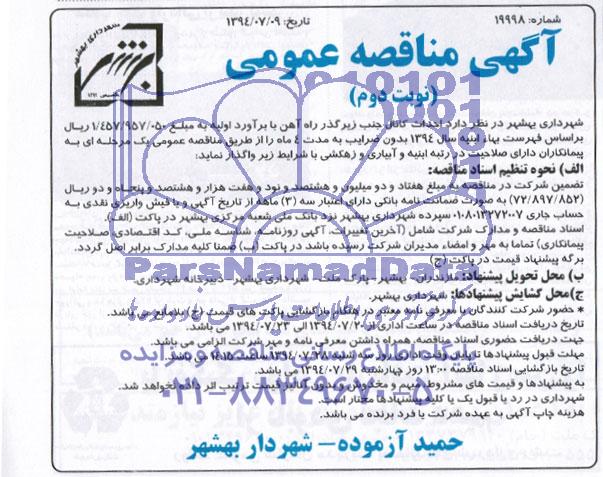 شماره: ۱۹۹۹۸
تاریخ: ۱۳۹۴/۰۷/۰۹
شهرداری بهشهر
آگهی مناقصه عمومی
(نوبت دوم)
شهرداری بهشهر در نظر دارد احداث کانال جنب زیرگذر راه آهن با برآورد اولیه به مبلغ ۱/۴۵۷/۹۵۷/۰۵۰ ریال
براساس فهرست بهاء ابنیه سال ۱۳۹۴ بدون ضرایب به مدت ۴ ماه را از طریق مناقصه عمومی یک مرحله ای به
پیمانکاران دارای صلاحیت در رتبه ابنیه و آبیاری و زهکشی با شرایط زیر واگذار نماید:
الف) نحوه تنظیم اسناد مناقصه:
تضمین شرکت در مناقصه به مبلغ هفتاد و دو میلیون و هشتصد و نود و هفت هزار و هشتصد و پنجاه و دو ریال
(۷۲/۸۹۷/۸۵۲) به صورت ضمانت نامه بانکی دارای اعتبار سه (۳) ماهه از تاریخ آگهی و یا فیش واریزی نقدی به
حساب جاری ۰۱۰۸۰۱۳۲۷۲۰۰۷ سپرده شهرداری بهشهر نزد بانک ملی شعبه مرکزی بهشهر در پاکت (الف).
اسناد مناقصه و مدارک شرکت شامل (آخرین تغییرات، آگهی روزنامه، شناسه ملی، کد اقتصادی، صلاحیت
پیمانکاری) تماما به مهر و امضاء مدیران شرکت رسیده باشد در پاکت (ب) ضمنا کلیه مدارک برابر اصل گردد.
برگه پیشنهاد قیمت در پاکت (ج)
ب) محل تحویل پیشنهاد: مازندران- بهشهر- پارک ملت- شهرداری بهشهر- دبیرخانه شهرداری.
ج) محل گشایش پیشنهادها: شهرداری بهشهر.
* حضور شرکت کنندگان با معرفی نامه معتبر در هنگام بازگشایی پاکت های قیمت (ج) بلامانع می باشد.
تاریخ دریافت اسناد مناقصه در ساعت اداری از ۱۳۹۴/۰۷/۲۰ الی ۱۳۹۴/۰۷/۲۳ می باشد.
جهت دریافت حضوری اسناد مناقصه به همراه داشتن معرفی نامه و مهر شرکت الزامی می باشد.
مهلت قبول پیشنهادها تا پایان وقت اداری روز سه شنبه ۱۳۹۴/۰۷/۲۸ ساعت ۱۴:۱۵
تاریخ بازگشایی اسناد مناقصه ۱۳:۰۰ روز چهارشنبه ۱۳۹۴/۰۷/۲۹ می باشد.
به پیشنهادها و قیمت های مشروط، مبهم و مخدوش و بدون آنالیز قیمت ترتیب اثر داده نخواهد شد.
شهرداری در رد یا قبول یک یا کلیه پیشنهادها مختار است.
هزینه چاپ آگهی به عهده شرکت یا فرد برنده می باشد.
حمید آزموده- شهردار بهشهر
ParsNamadData
پایگاه اطلاع رسانی مناقصه و مزایده
۰۲۱-۸۸۳۴۹۶۷۰-۵